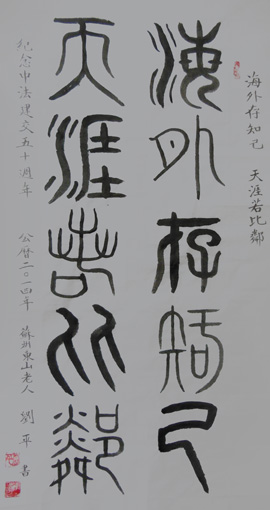 海外存知己 天涯若比鄰
海外存知己
天涯若比鄰
紀念中法建交五十週年 公曆二〇一四年 蘇州東山老人 劉平書